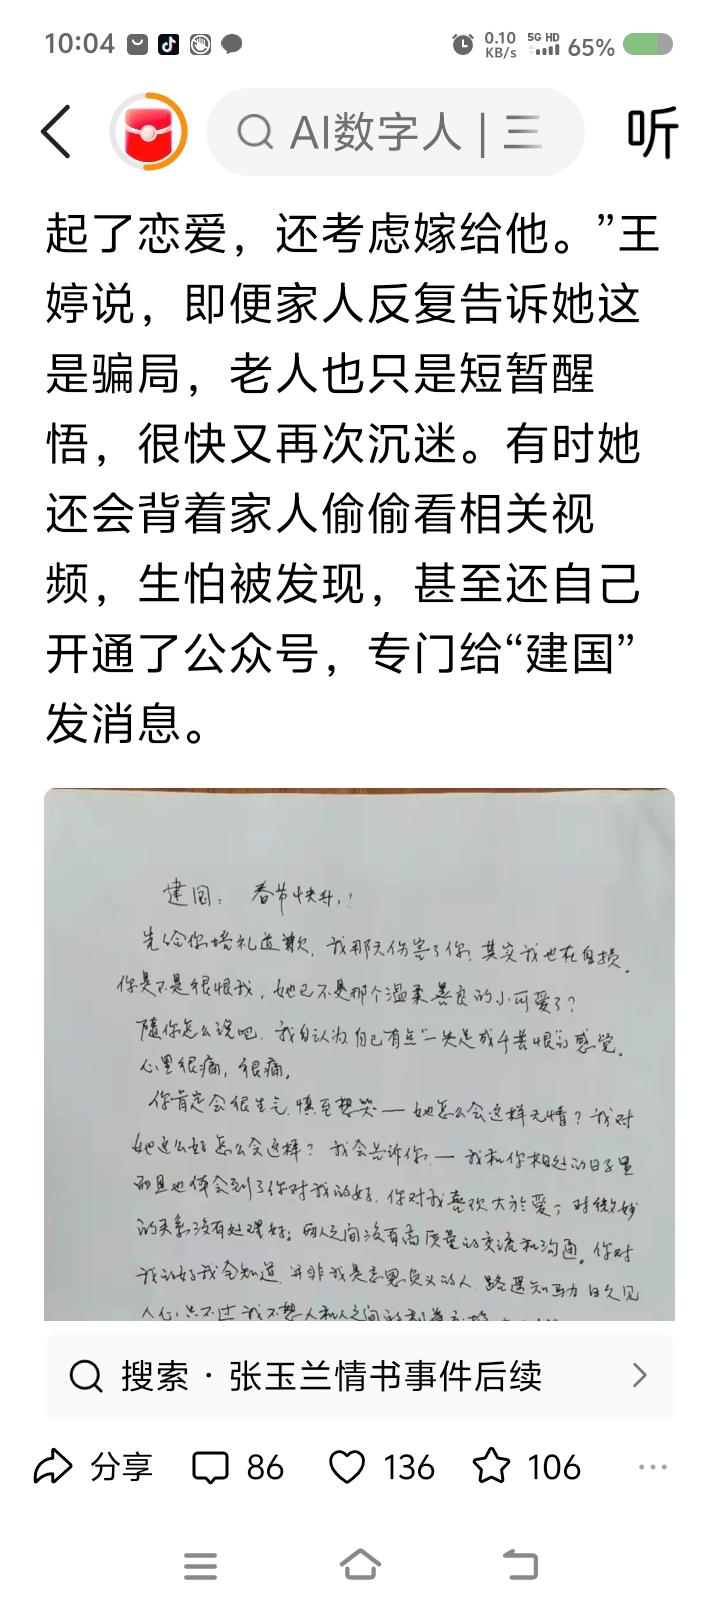 10:04
0.10
KB/s
5G HD
65%
AI数字人 | 三
听
起了恋爱，还考虑嫁给他。”王
婷说，即便家人反复告诉她这
是骗局，老人也只是短暂醒
悟，很快又再次沉迷。有时她
还会背着家人偷偷看相关视
频，生怕被发现，甚至还自己
开通了公众号，专门给“建国”
发消息。
建国： 春节快乐！
先给你赔礼道歉，我那天伤害了你，其实我也在自损。
你是不是很恨我，她已不是那个温柔善良的小可爱了？
随你怎么说吧，我自认为自已有点“一失足成千苦恨”的感觉。
心里很痛，很痛。
你肯定会很生气，慎至想哭—她怎么会这样无情？我对
她这么好怎么会这样？我会告诉你—我和你相处的日子里
而且也体会到了你对我的好，你对我喜欢大於爱，对微妙
的关系没有处理好；两人之间没有高质量的交流和沟通。你对
我的好我全知道，并非我是忘恩负义的人，路遥知马力日久见
人心，只不过我不想人和人之间的
搜索 · 张玉兰情书事件后续
分享
86
136
106